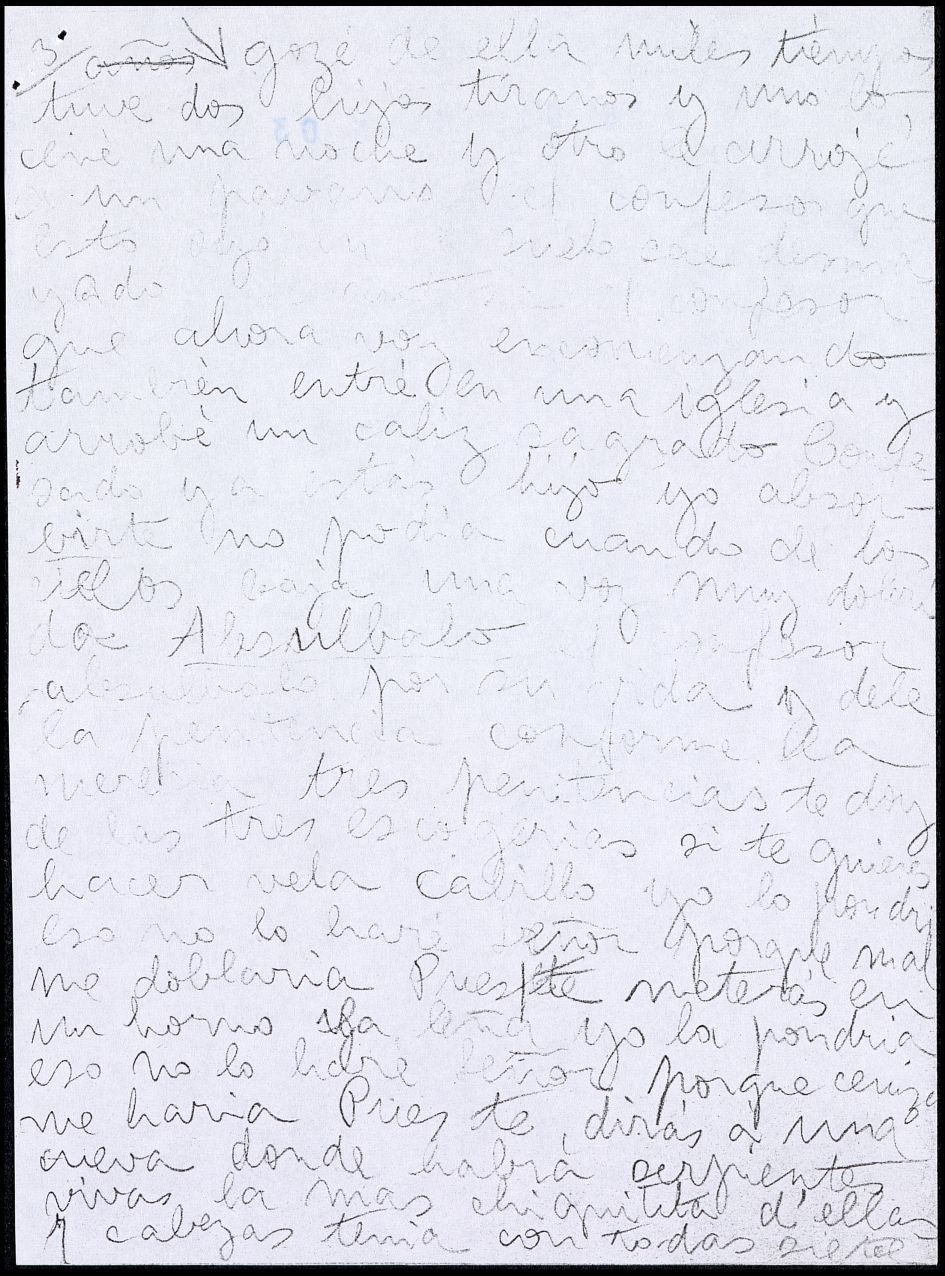 3 años gozé de ella miles tiempos
tuve dos hijos tiranos y uno lo
cené una noche y otro arrojé
a un pavano el confesor que
esto oyó suelo cae desma
yado confesor
que ahora voy encomenzando
también entré en una iglesia y
arrobé un caliz sagrado Confe
sado ya estás hijo yo absor-
birte no podia cuando de los
cielos baja una voz muy dolori
da Absuelbalo confesor
absuevalo por su vida y dele
la penitencia conforme la
merecia tres penitencias te doy
de las tres escogerias si te quieres
hacer vela cabillo yo lo pondri
eso no lo haré Señor porque mal
me doblaria Pues te meterás en
un horno la leña yo la pondria
eso no lo haré Señor porque ceniza
me haria Pues te dirás a una
cueva donde habrá serpientes
vivas la mas chiquitita d'ellas
7 cabezas tenia con todas siete